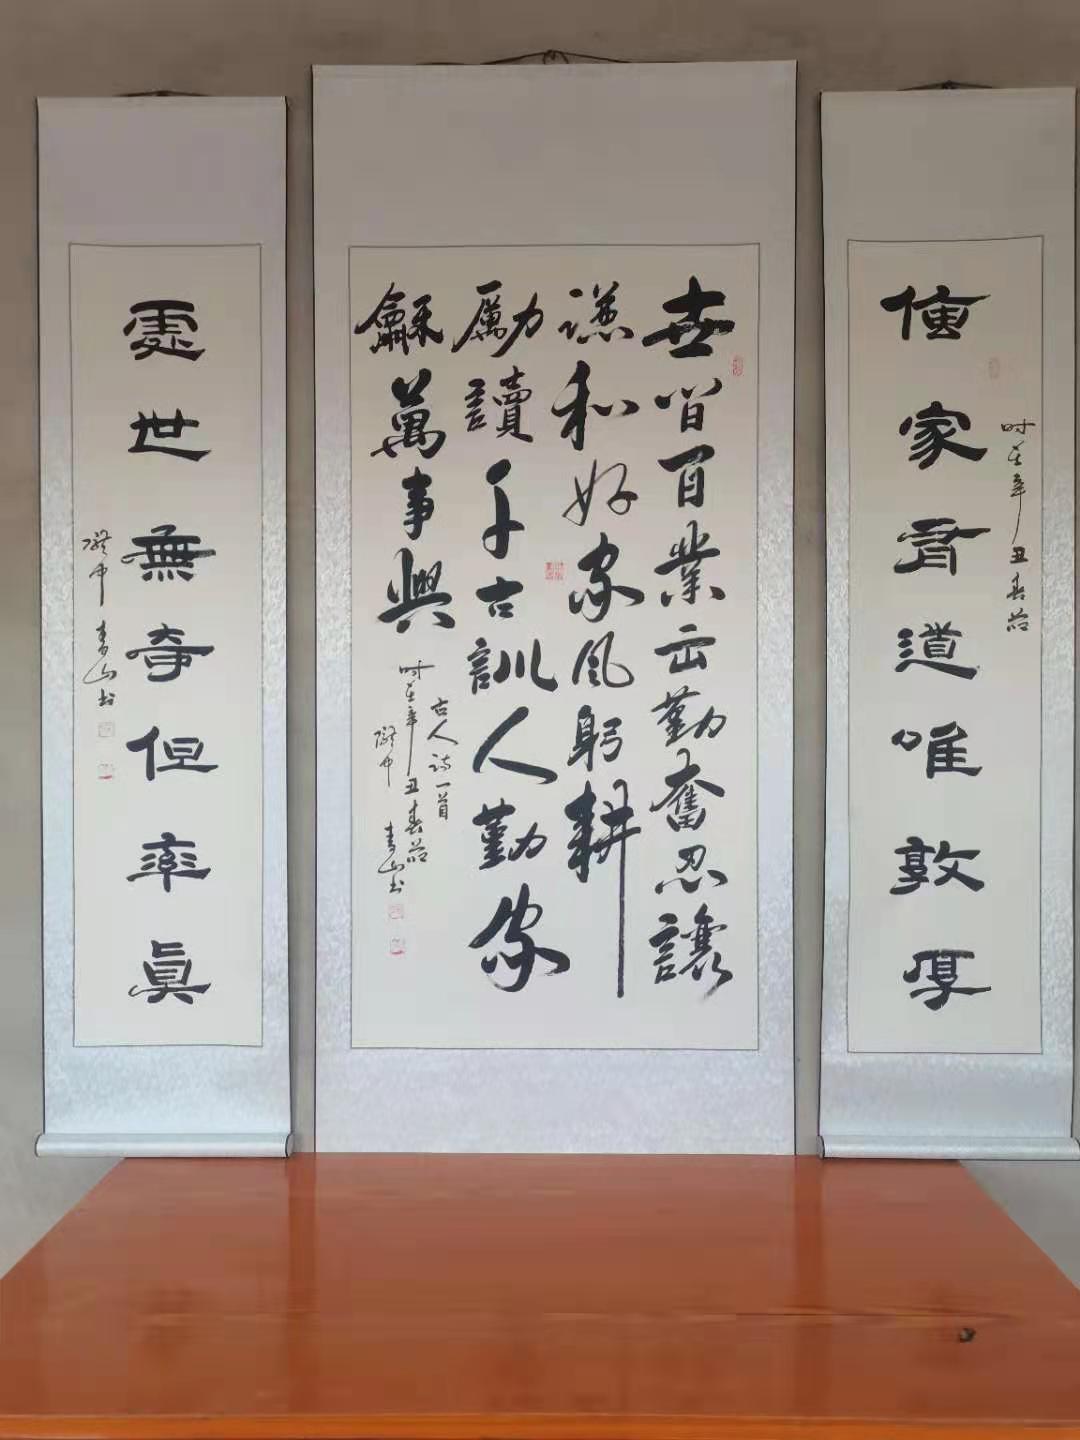 傳家有道唯敦厚
时在辛丑春
世間百業勤奮忍讓
謙和好家風躬耕
勵讀千古訓人勤家
龢萬事興
古人诗一首
时在辛丑春
隴中 青山书
處世無奇但率真
隴中 青山书